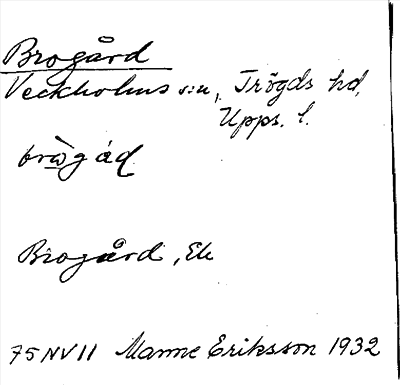 Brogård
Veckholms sn, Trögds hd,
Upps. l.
brωgåd
Brogård, Ek
75 NV 11 Manne Eriksson 1932